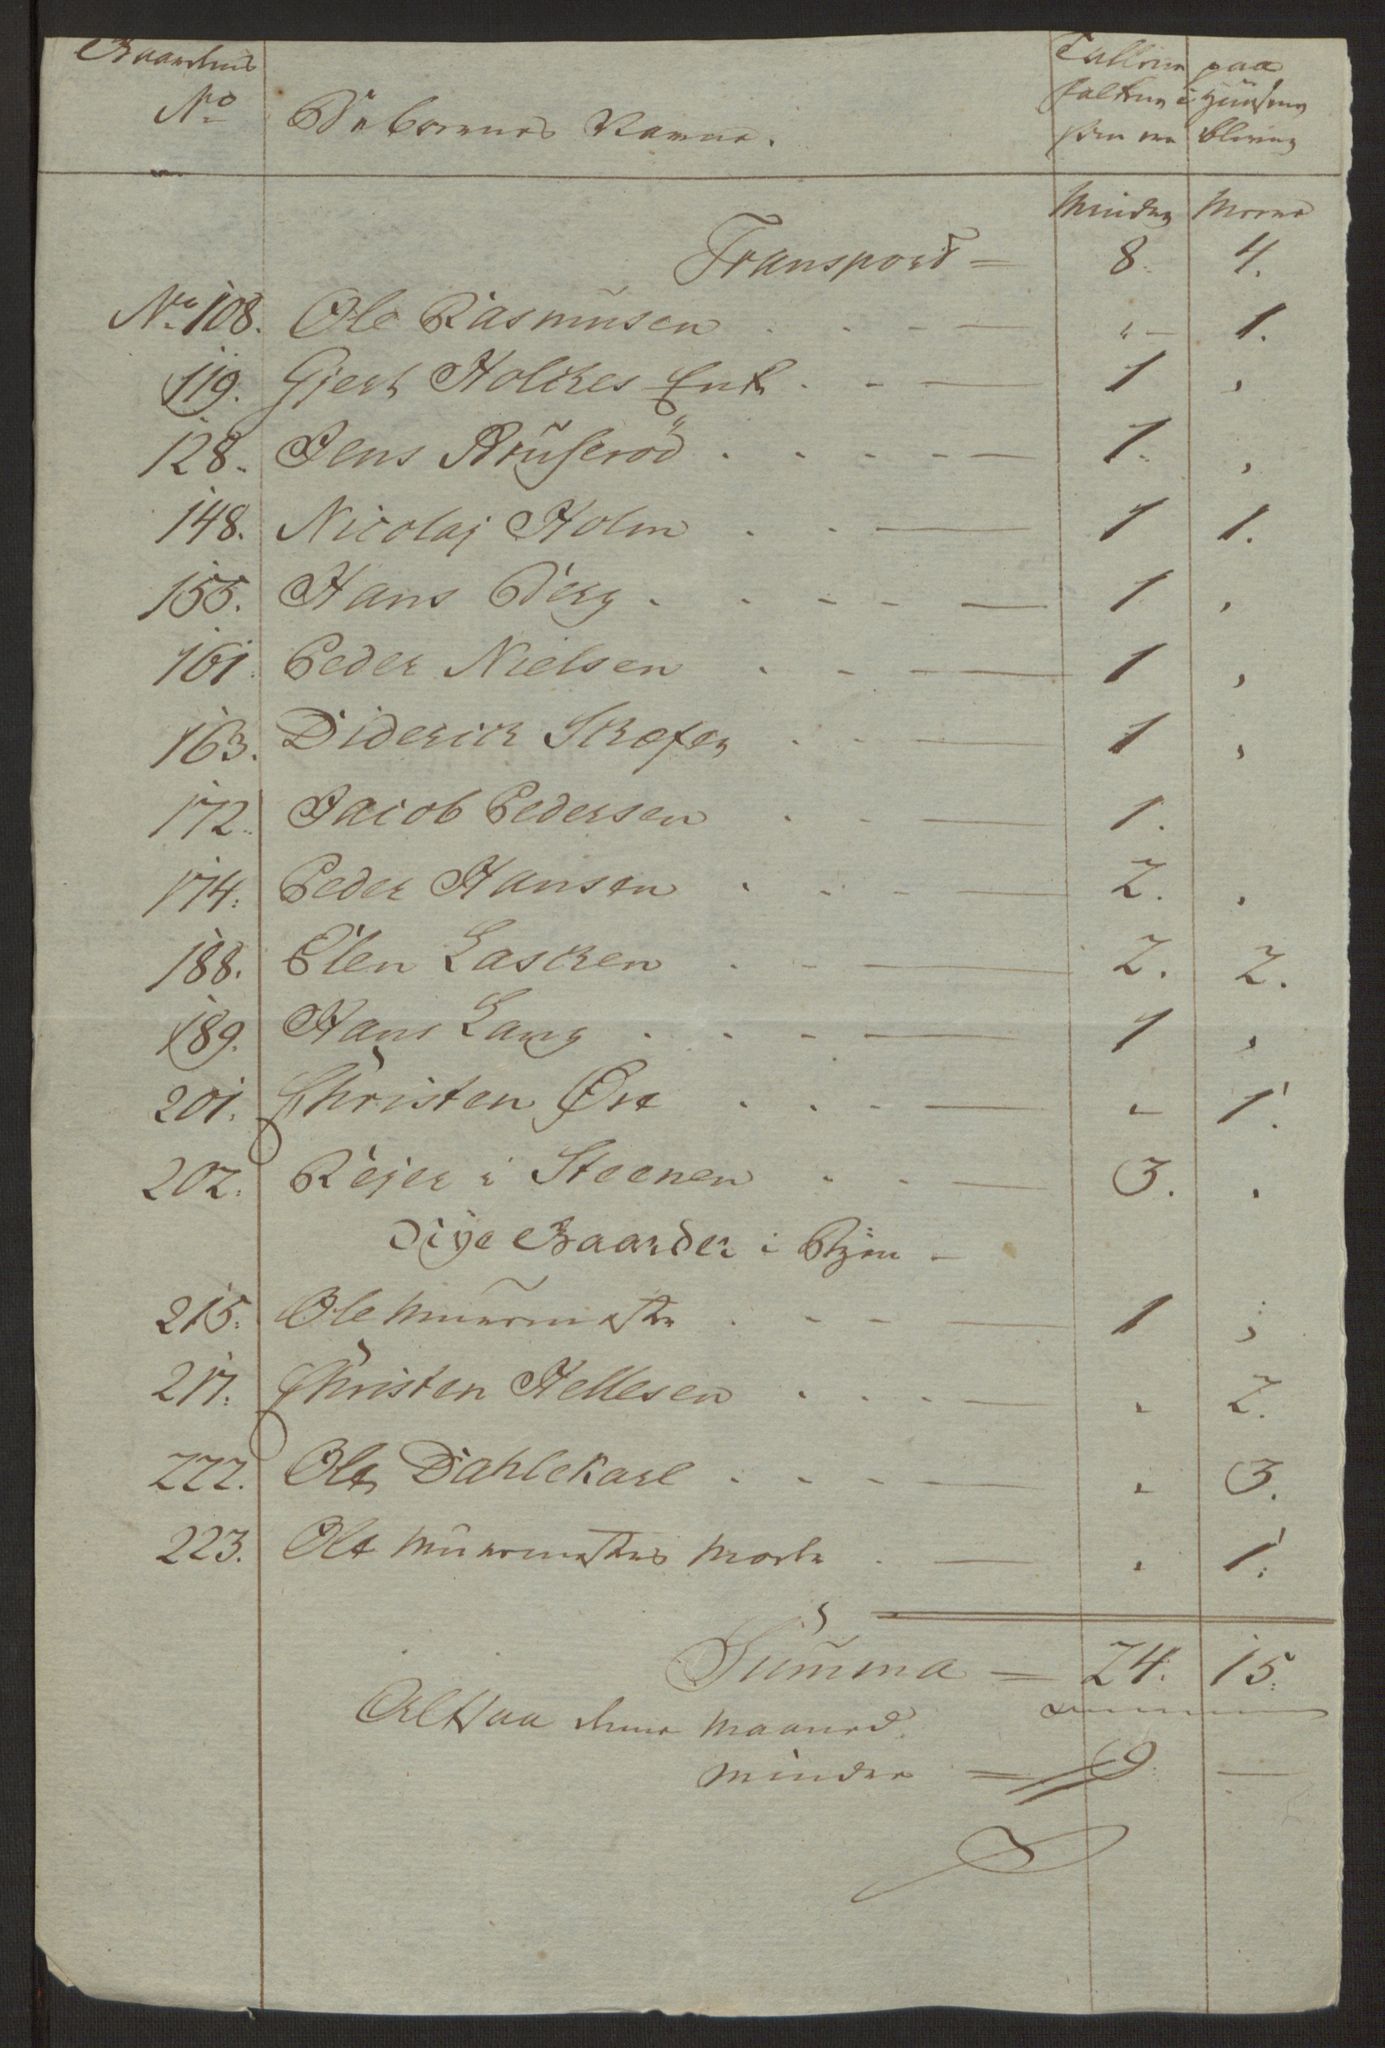 Gaardens
No
Beboernes Navne.
Tallene paa
Folkene i Huusene
ere bleven
Minder Meere
Transport = 8. 4.
No 108. Ole Rasmusen . . . — " — 1.
119. Gjert Holckes Enke . - — 1 ,
128. Jens Bruserød . . . - — 1. ,
148. Nicolaj Holm . . — 1 1.
155. Hans Berg . . . - - — 1 ,
161. Peder Nielsen . - - — 1 ,
163. Diderich Skofer . . — 1 ,
172. Jacob Pedersen . . — 1.
174. Peder Hansen . . - — 2. .
188. Elen Lasken . - — 2. 2.
189. Hans Lang . . - — 1 ,
201. Christen Øre . . . — " 1.
202. Rejer i Steenen . . — 3. .
Nye Gaarder i Byen —
215. Ole Muurmester . . - — 1 ,
217. Christen Hellesen . . . — " 2.
222. Ole Dahlekarl . . . - — " 3.
223. Ole Muurmesters Moder . — " 1.
Summa = 24. 15.
Altsaa denne Maaned
minder = 9. —